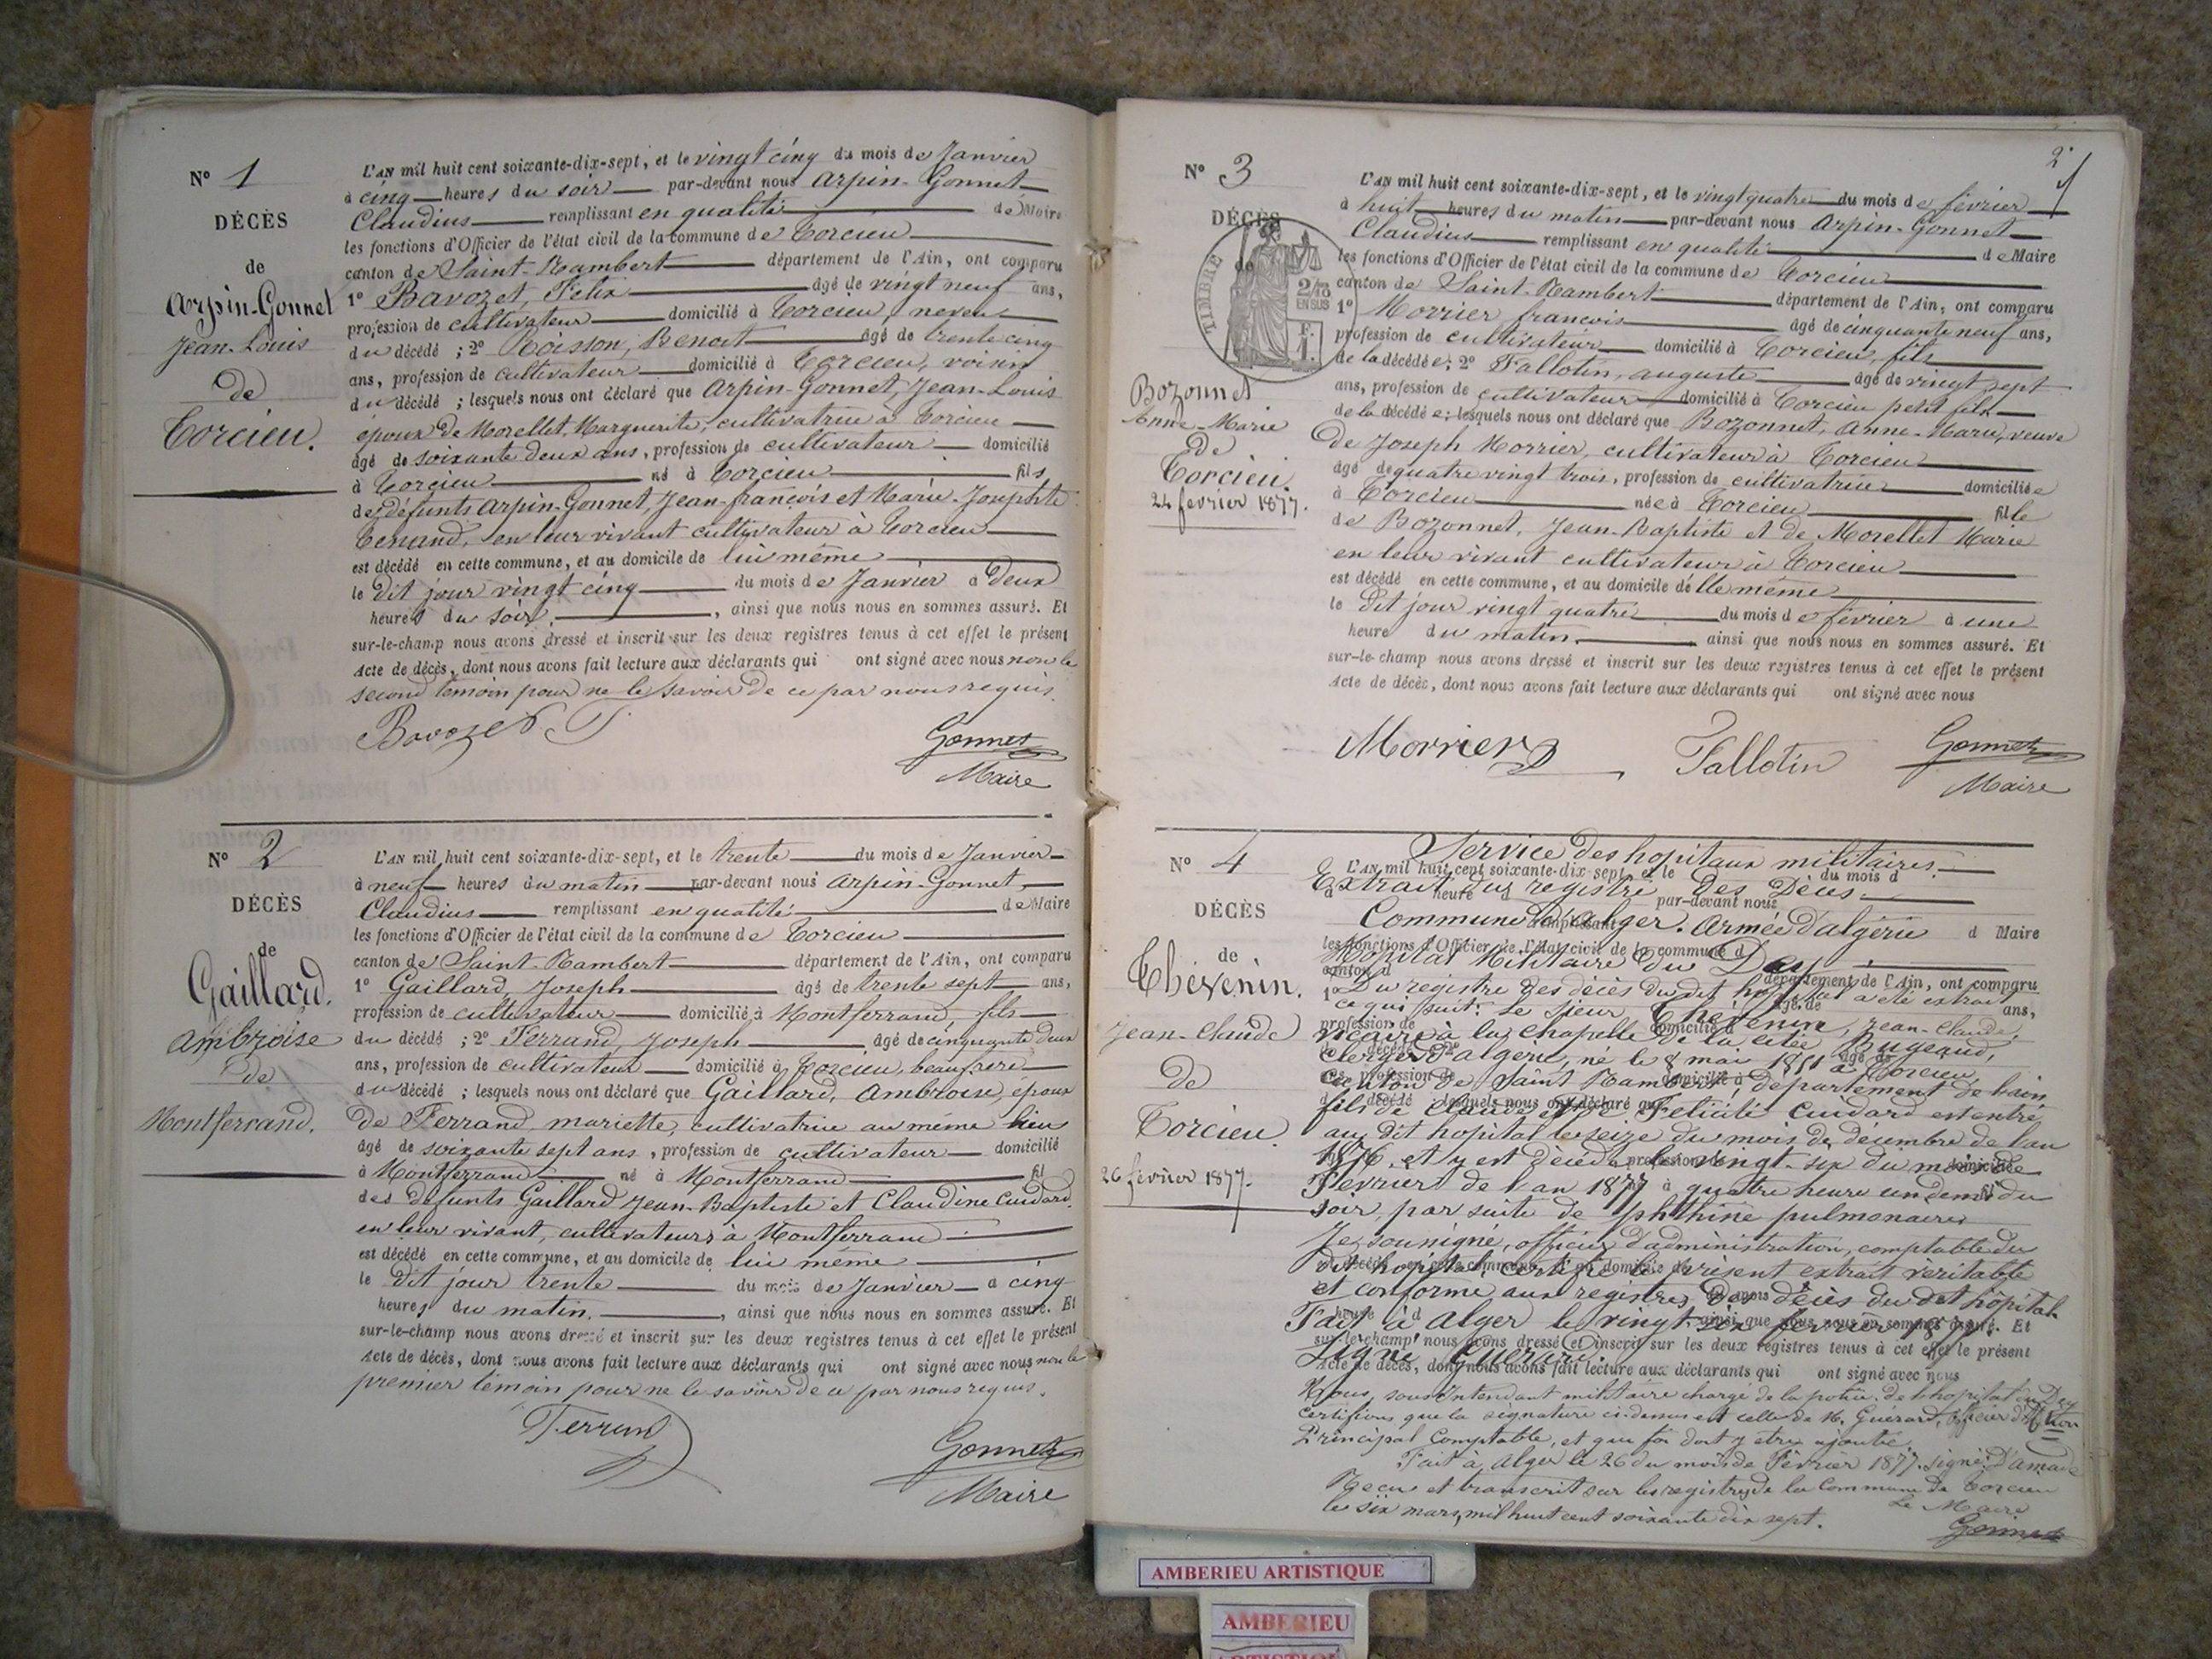 N° 1
DÉCÈS
de
Arpin-Gonnet
Jean-Louis
de
Torcieu.
L'AN mil huit cent soixante-dix-sept, et le vingt cinq du mois de Janvier
à cinq heures du soir par-devant nous Arpin-Gonnet
Claudius remplissant en qualité de Maire
les fonctions d'Officier de l'état civil de la commune de Torcieu
canton de Saint-Rambert département de l'Ain, ont comparu
1° Bavozet, Félix âgé de vingt neuf ans,
profession de cultivateur domicilié à Torcieu, neveu
du décédé ; 2° Boisson, Benoit âgé de trente cinq
ans, profession de cultivateur domicilié à Torcieu, voisin
du décédé ; lesquels nous ont déclaré que Arpin-Gonnet, Jean-Louis
époux de Morellet, Marguerite, cultivatrice à Torcieu
âgé de soixante deux ans, profession de cultivateur domicilié
à Torcieu né à Torcieu fils
des défunts Arpin-Gonnet, Jean-françois et Marie-Josephte
Tenand, en leur vivant cultivateur à Torcieu
est décédé en cette commune, et au domicile de lui même
le dit jour vingt cinq du mois de Janvier à deux
heures du soir, ainsi que nous nous en sommes assuré. Et
sur-le-champ nous avons dressé et inscrit sur les deux registres tenus à cet effet le présent
Acte de décès, dont nous avons fait lecture aux déclarants qui ont signé avec nous non le
second témoin pour ne le savoir de ce par nous requis.
Bavozet F
Gonnet
Maire
N° 2
DÉCÈS
de
Gaillard.
Ambroise
de
Montferrand.
L'AN mil huit cent soixante-dix-sept, et le trente du mois de Janvier
à neuf heures du matin par-devant nous Arpin-Gonnet,
Claudius remplissant en qualité de Maire
les fonctions d'Officier de l'état civil de la commune de Torcieu
canton de Saint-Rambert département de l'Ain, ont comparu
1° Gaillard, Joseph âgé de trente sept ans,
profession de cultivateur domicilié à Montferrand, fils
du décédé ; 2° Ferrand, Joseph âgé de cinquante deux
ans, profession de cultivateur domicilié à Torcieu, beaufrère
du décédé ; lesquels nous ont déclaré que Gaillard, Ambroise, époux
de Ferrand mariette, cultivatrice au même lieu
âgé de soixante sept ans, profession de cultivateur domicilié
à Montferrand né à Montferrand fil
des défunts Gaillard Jean-Baptiste et Claudine Cuidard,
en leur vivant, cultivateurs à Montferrand
est décédé en cette commune, et au domicile de lui même
le dit jour trente du mois de Janvier à cinq
heures du matin, ainsi que nous nous en sommes assuré. Et
sur-le-champ nous avons dressé et inscrit sur les deux registres tenus à cet effet le présent
Acte de décès, dont nous avons fait lecture aux déclarants qui ont signé avec nous non le
premier témoin pour ne le savoir de ce par nous requis.
Ferrand
Gonnet
Maire
2
N° 3
DÉCÈS
de
TIMBRE
2/10
EN SUS
F.
1.
Bozonnet
Anne-Marie
de
Torcieu.
24 fevrier 1877.
L'AN mil huit cent soixante-dix-sept, et le vingt quatre du mois de février
à huit heures du matin par-devant nous Arpin-Gonnet
Claudius remplissant en qualité de Maire
les fonctions d'Officier de l'état civil de la commune de Torcieu
canton de Saint-Rambert département de l'Ain, ont comparu
1° Morrier françois âgé de cinquante neuf ans,
profession de cultivateur domicilié à Torcieu, fils
de la décédée ; 2° Fallotin, auguste âgé de vingt sept
ans, profession de cultivateur domicilié à Torcieu petit fils
de la décédée ; lesquels nous ont déclaré que Bozonnet, Anne-Marie, veuve
de Joseph Morrier, cultivateur à Torcieu
âgé de quatre vingt trois, profession de cultivatrice domiciliée
à Torcieu née à Torcieu fille
de Bozonnet, Jean-Baptiste et de Morellet Marie
en leur vivant cultivateur à Torcieu
est décédé en cette commune, et au domicile d'elle même
le dit jour vingt quatre du mois de février à une
heure du matin, ainsi que nous nous en sommes assuré. Et
sur-le-champ nous avons dressé et inscrit sur les deux registres tenus à cet effet le présent
Acte de décès, dont nous avons fait lecture aux déclarants qui ont signé avec nous
Morrier
Fallotin
Gonnet
Maire
N° 4
DÉCÈS
de
Thévenin.
Jean-Claude
de
Torcieu.
26 fevrier 1877.
Service des hopitaux militaires.
L'AN mil huit cent soixante-dix-sept, et le du mois d
Extrait du registre des Décès.
à heure d par-devant nous
Commune d'Alger. Armée d'algérie
remplissant d Maire
les fonctions d'Officier de l'état civil de la commune d
Hopital Militaire du Dey
canton d département de l'Ain, ont comparu
Du registre des décès du dit hopital a été extrait
1° âgé de ans,
ce qui suit. Le Sieur Thévenin, Jean-Claude,
profession de domicilié à
vicaire à la Chapelle de la citée Bugeaud,
Clergé d'algérie, né le 8 mai 1851 à Torcieu,
canton de Saint Rambert, département de l'ain
fils de Claude et de Félicité Cuidard est entré
au dit hopital le seize du mois de décembre de l'an
1876, et y est décédé le vingt-six du mois de
Février de l'an 1877 à quatre heure un demi du
soir, par suite de phthisie pulmonaire
Je, soussigné, officier d'administration, comptable du
dit hopital, certifie le présent extrait véritable
et conforme aux registres des décès du dit hôpital.
Fait à Alger le vingt six fevrier 1877.
ainsi que nous nous en sommes assuré. Et
sur-le-champ nous avons dressé et inscrit sur les deux registres tenus à cet effet le présent
Signé Guérard.
Acte de décès, dont nous avons fait lecture aux déclarants qui ont signé avec nous
Nous, sous Intendant militaire chargé de la police de l'hopital du Dey
certifions que la signature ci-dessus est celle de M. Guérard, officier d'Aon
Principal Comptable, et que foi doit y etre ajoutée.
Fait à Alger le 26 du mois de Février 1877. signé: D'amade
Recu et transcrit sur les registres de la Commune de Torcieu
le six mars, mil huit cent soixante dix sept.
Le Maire
Gonnet
AMBERIEU ARTISTIQUE
AMBERIEU
ARTISTIQUE